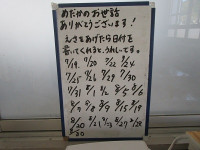 めだかのお世話
ありがとうございます！
えさをあげたら日付を
書いてくれると、うれしいです。
7/19. 7/20 7/22 7/24
7/25 7/26 7/29 7/30
7/31 8/1 8/5 8/6
8/7 8/8 8/9 8/15 8/19
8/20 8/21 8/23 8/27 8/28
8/30